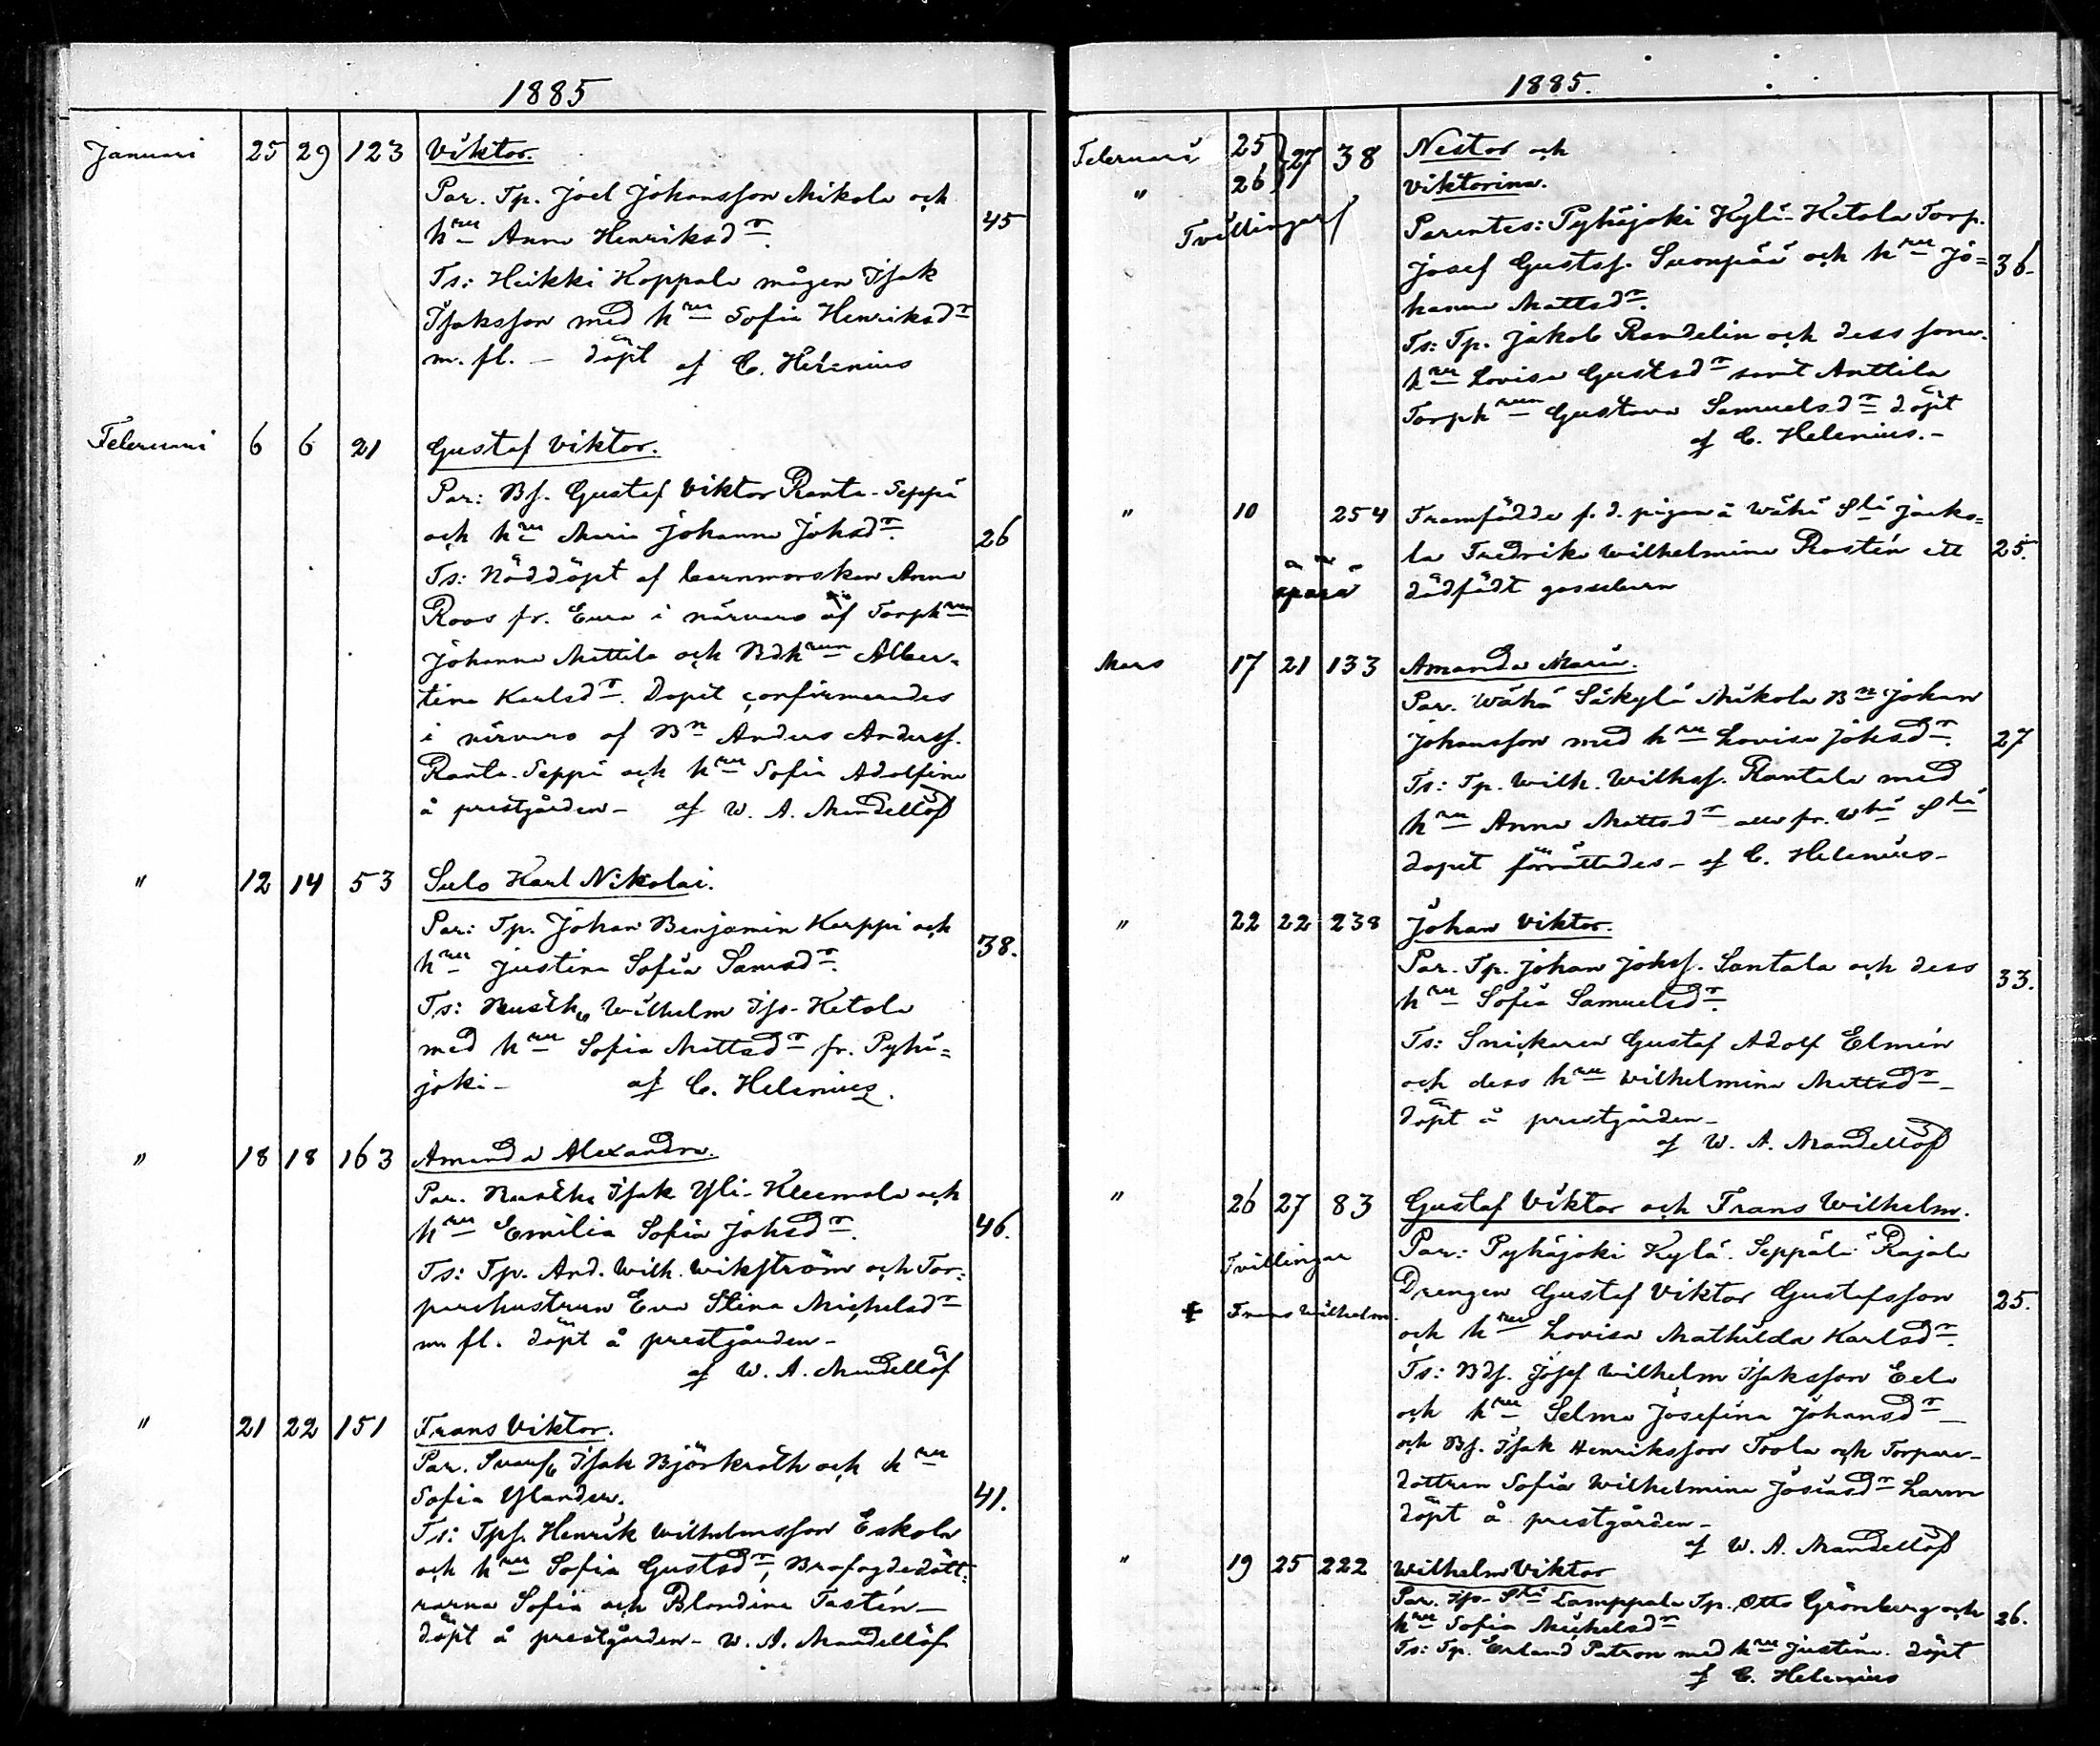 1885
Januari 25 29 123 Viktor.
Par. Tp. Joel Johansson Mikola och
hru Anna Henriksdr. 45
Ts: Heikki Koppala mågen Isak
Isaksson med hru Sofia Henriksdr
m. fl. – döpt af C. Helenius
Februari 6 6 21 Gustaf Viktor.
Par: Bs. Gustaf Viktor Ranta-Seppä
och hru Maria Johanna Johsdr. 26
Ts: Nöddöpt af barnmorskan Anna
Roos fr. Eura i närvaro af Torphrun
Johanna Mattila och Bdhrun Alber-
tina Karlsdr. Dopet confirmerades
i närvaro af Bn Anders Anderss.
Ranta-Seppä och hru Sofia Adolfina
å prestgården – af W. A. Mandellöf
" 12 14 53 Sulo Karl Nikolai.
Par: Tp. Johan Benjamin Karppi och
hru Justina Sofia Samsdr. 38.
Ts: Rusth. Wilhelm Iso-Ketola
med hru Sofia Mattsdr fr. Pyhä-
joki – af C. Helenius.
" 18 18 163 Amanda Alexandra.
Par. Rusth. Isak Yli-Kleemola och
hru Emilia Sofia Johsdr. 46.
Ts: Tp. And. Wilh. Wikström och Tor-
parehustrun Eva Stina Michelsdr
m fl. döpt å prestgården –
af W. A. Mandellöf
" 21 22 151 Frans Viktor.
Par. Isak Björkroth och hru
Sofia Ylander. 41.
Ts: Tps. Henrik Wilhelmsson Eskola
och hru Sofia Gustsdr, Brofogdedött-
rarna Sofia och Blondina Tastén –
döpt å prestgården – W. A. Mandellöf
1885.
Februari 25 27 38 Nestor och
" 26 Viktorina.
Tvillingar
Parentes: Pyhäjoki Kylä-Ketola Torp.
Josef Gustafs. Suonpää och hru Jo- 36.
hanna Mattsdr.
Ts: Tp. Jakob Randelin och dess sona-
hru Lovisa Gustsdr samt Anttila
Torphrun Gustava Samuelsdr döpt
af C. Helenius. –
" 10 254 Framfödde f. d. pigan å Wähä Slä Jaako-
la Fredrika Wilhelmina Rostén ett 25.
dödfödt gossebarn
Mars 17 21 133 Amanda Maria.
Par. Wähä Säkylä Mikola Bn Johan
Johansson med hru Lovisa Johsdr. 27
Ts: Tp. Wilh. Wilhss. Rantala med
hru Anna Mattsdr alla fr. Whä Slä
dopet förrättades – af C. Helenius –
" 22 22 238 Johan Viktor.
Par. Tp. Johan Johss. Santala och dess
hru Sofia Samuelsdr. 33.
Ts: Snickaren Gustaf Adolf Elmén
och dess hru Wilhelmina Mattsdr –
döpt å prestgården –
af W. A. Mandellöf
" 26 27 83 Gustaf Viktor och Frans Wilhelm.
Tvillingar
Par: Pyhäjoki Kylä-Seppälä Rajala
Drengen Gustaf Viktor Gustafsson 25.
† Frans Wilhelm.
och hru Lovisa Mathilda Karlsdr.
Ts: Bds. Josef Wilhelm Isaksson Eela
och hru Selma Josefina Johansdr –
och Bs. Isak Henriksson Toola och Torpare-
dottren Sofia Wilhelmina Josiasdr Larma
döpt å prestgården –
af W. A. Mandellöf
" 19 25 222 Wilhelm Viktor
Par. Iso-Slä Lamppala Tp. Otto Grönberg och
hru Sofia Michelsdr 26.
Ts: Tp. Erland Patron med hru Justina. döpt
af C. Helenius